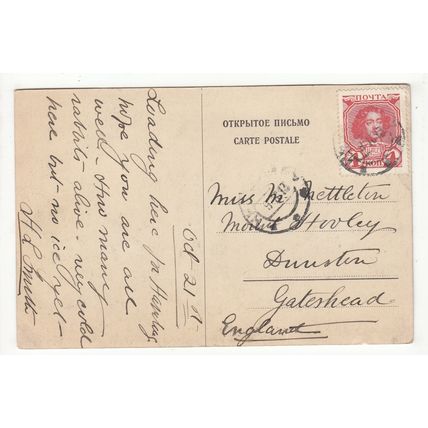 Oct 21st
Loading here for Hartley
hope you are all
well - How many
rabbits alive - very cold
here but no ice yet -
H L Smith
ОТКРЫТОЕ ПИСЬМО
CARTE POSTALE
ПОЧТА
4 КОП 4
Miss M Nettleton
Mount Hooley
Dunston
Gateshead
England